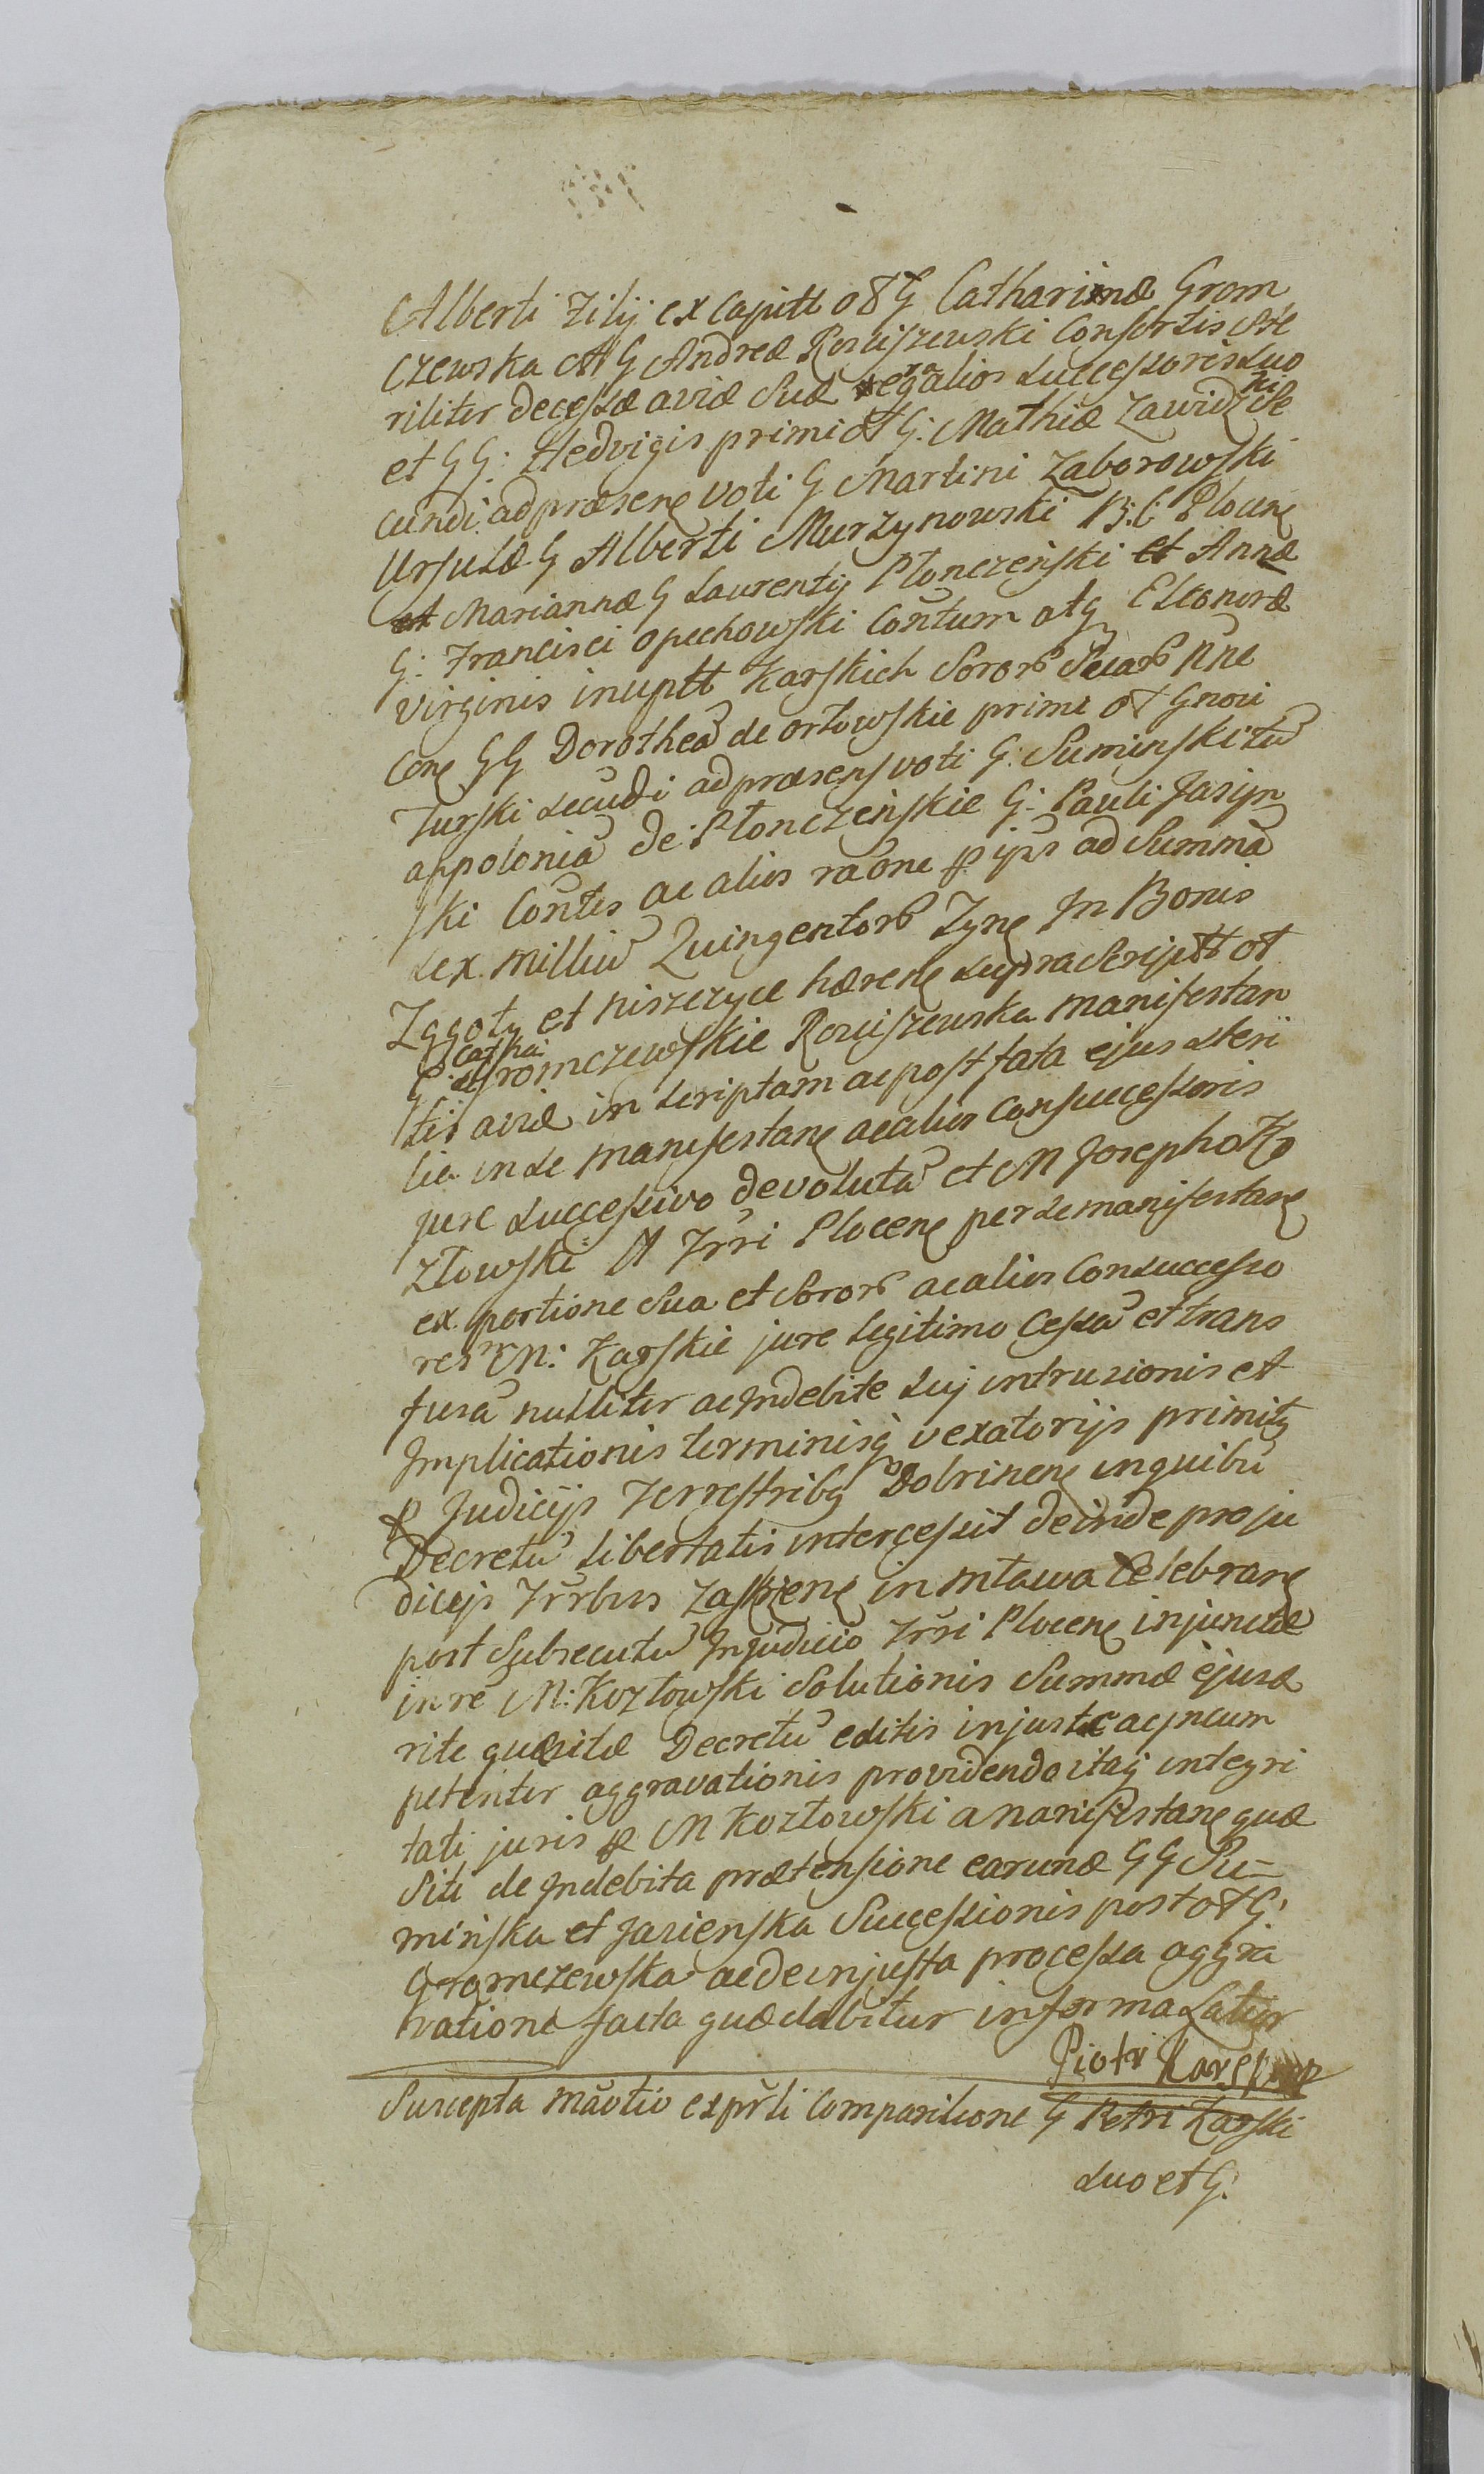 Alberti Filij ex Capitt oℓ G Catharinæ Grom
czewska oℓ G Andreæ Rosciszewski Consortis Ste
riliter decessæ aviæ Suæ erga alios Successores Suo
et GG: Hedvigis primi oℓ G: Mathiæ Zawidzki Se
cundi ad præsens Voti G Martini Zaborowski
Ursulæ G Alberti Murzynowski B: C Plocens
et Mariannæ G Laurentij Płonczeński et Annæ
G: Francisci Opechowski Contum atq Eleonoræ
Virginis inuptt Karskich Soror Suar Nne
Cone GG Dorotheā de Orłowskie primi oℓ Gnovi
Turski Secudi ad præsens voti G: Suminski tū
appoloniā de Płonczeńskie G: Pauli Jasijn
ski Contis ac alios raōne p ijs ad Summā
sex milliū Quingentor Fyne In Bonis
Zggoty et niszczyce hærene supra Scriptt oℓ
G: Cathai Gromczewskie Rosciszewska manifestan
tis aviæ inscriptam ac post fata ejus steri
lia in Se manifestane ac alios Consuccessoris
jure successivo devolutā et M Josepho Ko
złowski N Trri Plocene per se manifestane
ex portione Sua et Soror ac alios Consuccesso
res M: Karskie jure legitimo Cessā et trans
fusā nulliter ac Indebite Suj intrusionis et
Implicationis terminisq vexatorijs primitq
p Judicijs Terrestribq Dobrinene in quibū
Decretū libertatis intercessit deinde pro ju
dicijs Trrbus Zaskrzene in Mława Celebrane
post Subsecutū In judicio Trri Plocene injunctæ
in re M: Kozłowski Solutionis Summæ ejusæ
rite quæsitæ Decretū editis injuste ac incum
petenter aggravationis providendo itaq integri
tati juris p M Kozłowski a manifestane quæ
siti de Indebita prætensione earunæ GG Su-
mińska et Jasieńska Successionis post oℓ G:
Gromczewska ac de injusta processa aggra
vatione facta quæ dabitur informa Latior
Piotr Karski mp
Suscepta māōtio expr̄ti Comparitione G Petri Karski
suo et G: